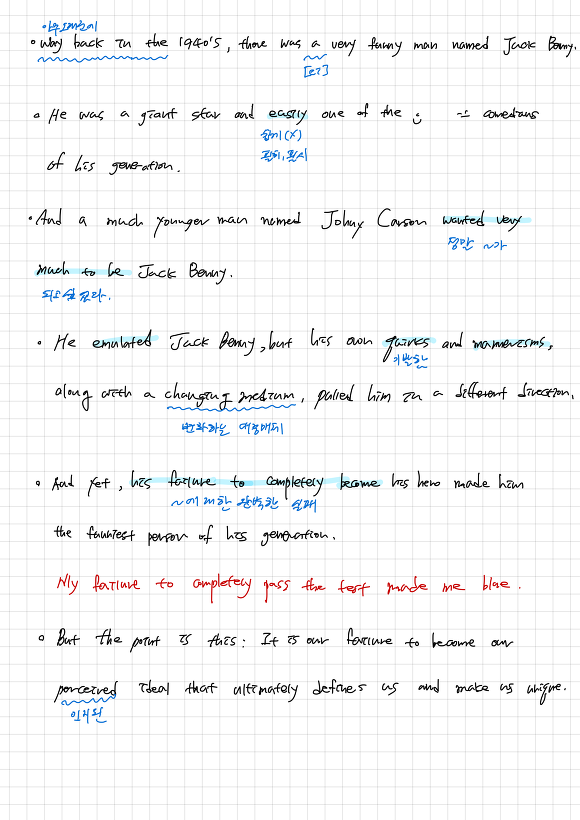 아주 오래전에
• Way back in the 1940's, there was a very funny man named Jack Benny.
[eɪ]
• He was a giant star and easily one of the comedians
쉽게 (X)
필히, 필시
of his generation.
• And a much younger man named Johny Carson wanted very
정말 ~가
much to be Jack Benny.
되고 싶었다.
• He emulated Jack Benny, but his own quirks and mannerisms,
기발한
along with a changing medium, pulled him in a different direction.
변화하는 대중매체
• And yet, his failure to completely become his hero made him
~에 대한 완벽한 실패
the funniest person of his generation.
My failure to completely pass the test made me blue.
• But the point is this: It is our failure to become our
perceived ideal that ultimately defines us and make us unique.
인지된